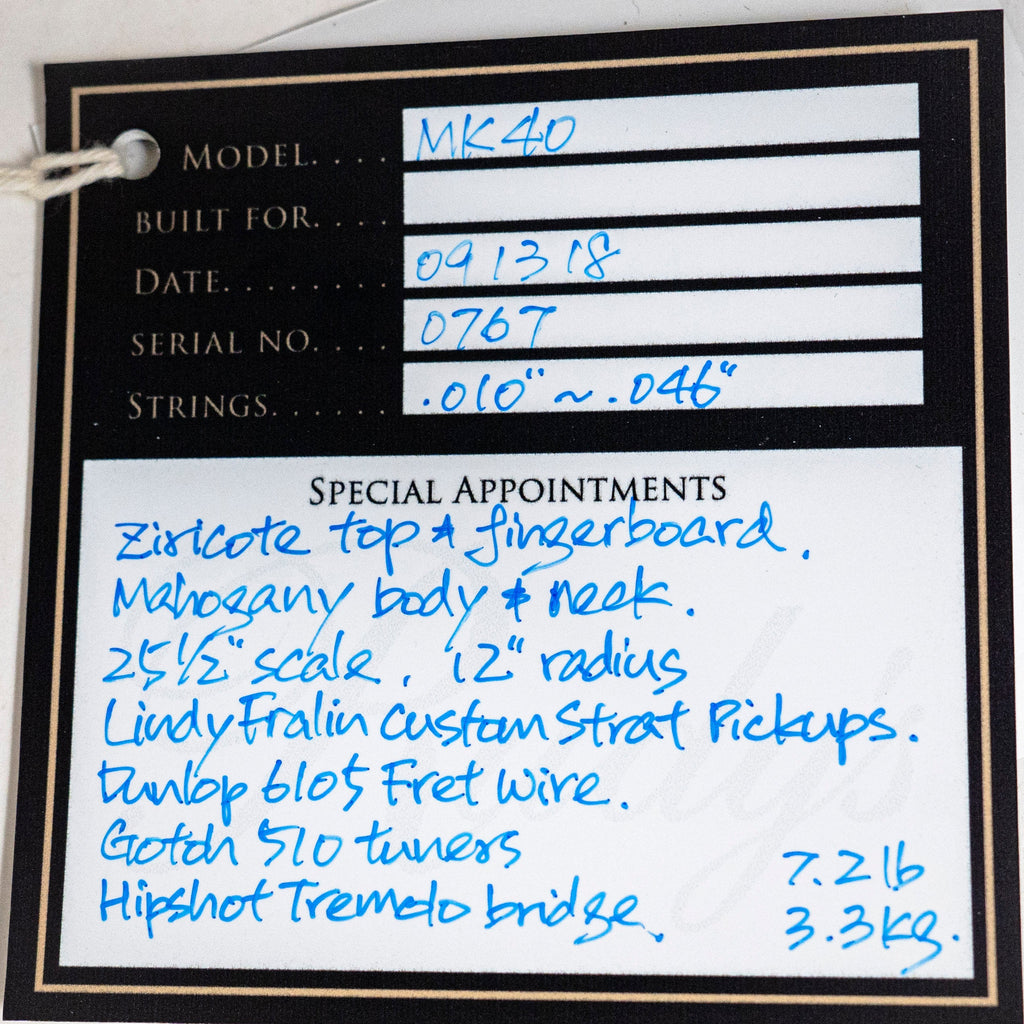 MODEL. . . . MK40
BUILT FOR. . . .
DATE. . . . . . . . 091318
SERIAL NO. . . . 0767
STRINGS. . . . . . .010" ~ .046"
SPECIAL APPOINTMENTS
Ziricote top & fingerboard.
Mahogany body & neck.
25 1/2" scale. 12" radius
Lindy Fralin Custom Strat Pickups.
Dunlop 6105 Fret Wire.
Gotoh 510 tuners
7.2 lb
Hipshot Tremolo bridge.
3.3kg.